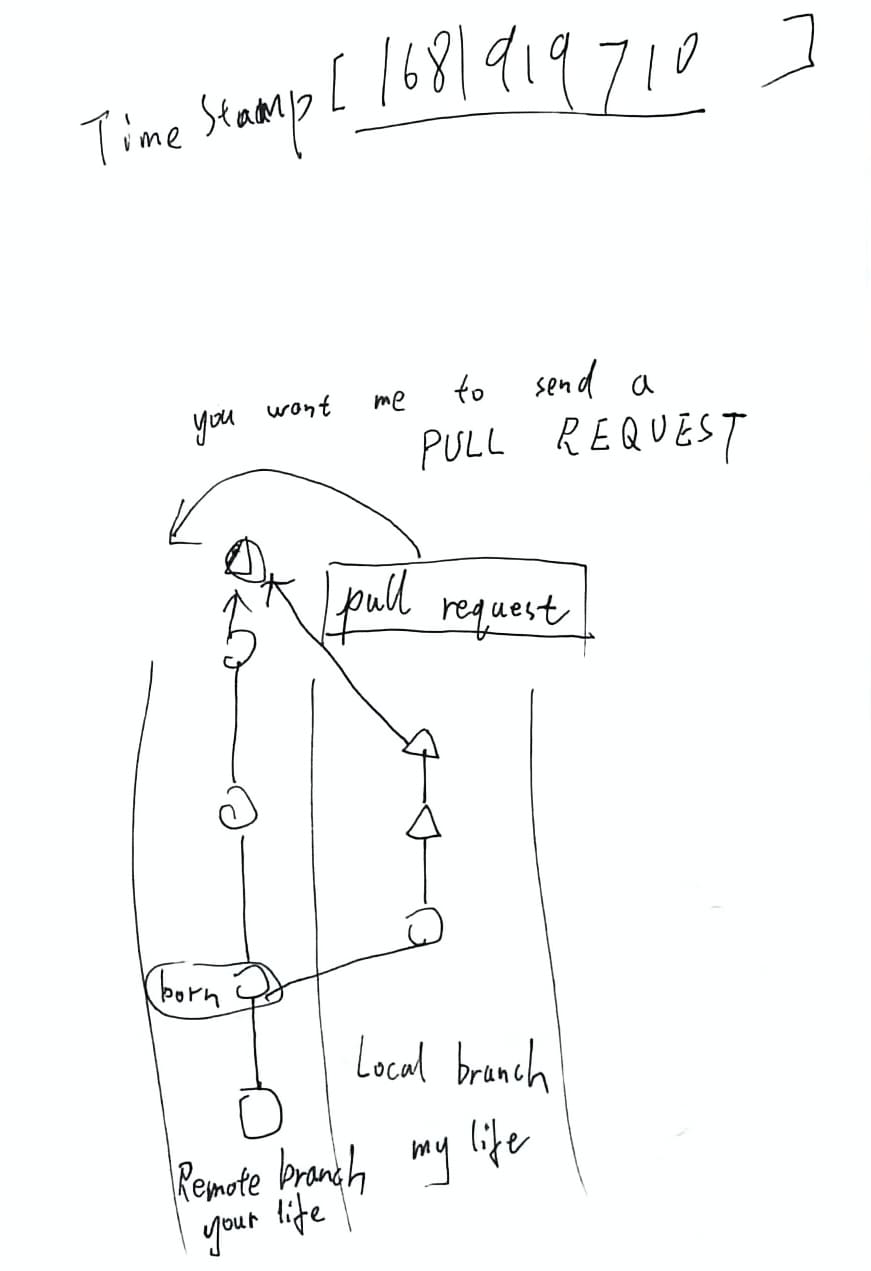 Time Stamp [ 1681919710 ]
you want me to send a
PULL REQUEST
pull request
born
Local branch
my life
Remote branch
your life